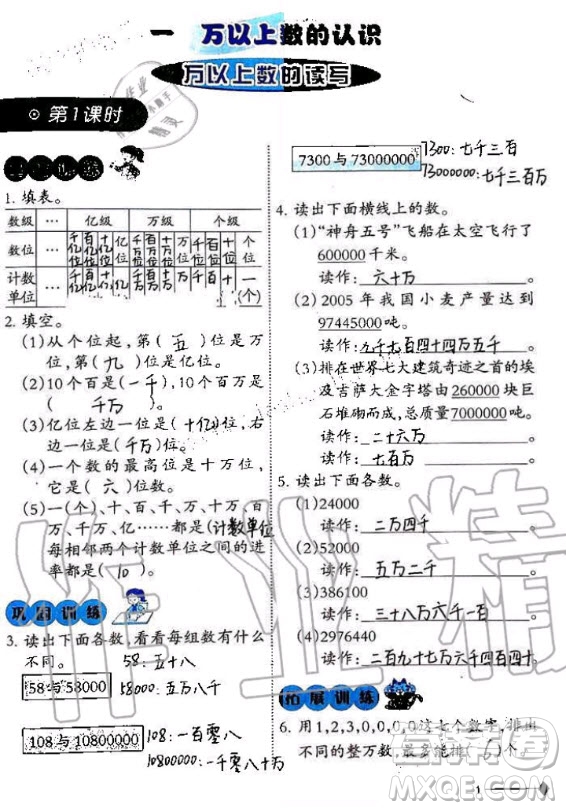 一 万以上数的认识
万以上数的读写
第1课时
1. 填表。
数级 … 亿级 万级 个级
数位 … 千亿位 百亿位 十亿位 亿位 千万位 百万位 十万位 万位 千位 百位 十位 个位
计数单位 … 千亿 百亿 十亿 亿 千万 百万 十万 万 千 百 十 一(个)
2. 填空。
(1)从个位起,第( 五 )位是万
位,第( 九 )位是亿位。
(2)10个百是(一千),10个百万是
( 千万 )。
(3)亿位左边一位是(十亿)位,右
边一位是(千万)位。
(4)一个数的最高位是十万位,
它是( 六 )位数。
(5)一(个)、十、百、千、万、十万、百
万、千万、亿……都是(计数单位)
每相邻两个计数单位之间的进
率都是( 10 )。
巩固训练
3. 读出下面各数,看看每组数有什么
不同。 58:五十八
58与58000 58000:五万八千
108与10800000 108:一百零八
10800000:一千零八十万
7300与73000000 7300:七千三百
73000000:七千三百万
4. 读出下面横线上的数。
(1)“神舟五号”飞船在太空飞行了
600000千米。
读作: 六十万 。
(2)2005年我国小麦产量达到
97445000吨。
读作: 九千七百四十四万五千 。
(3)排在世界七大建筑奇迹之首的埃
及吉萨大金字塔由260000块巨
石堆砌而成,总质量7000000吨。
读作: 二十六万 。
读作: 七百万 。
5. 读出下面各数。
(1)24000
读作: 二万四千 。
(2)52000
读作: 五万二千 。
(3)386100
读作: 三十八万六千一百 。
(4)2976440
读作: 二百九十七万六千四百四十 。
拓展训练
6. 用1,2,3,0,0,0,0这七个数字,排出
不同的整万数,最多能排( 6 )个。
1
作业精
答案圈
MXQE.COM